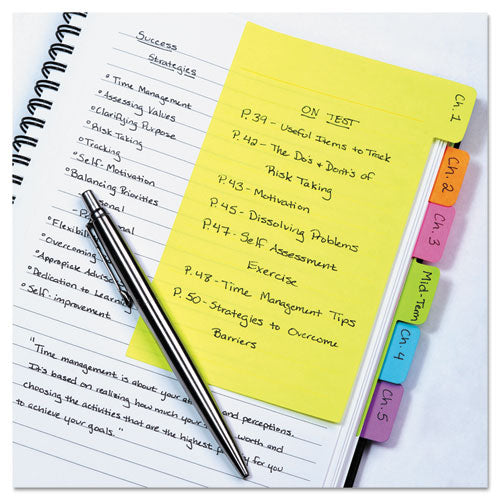 Success
Strategies
Time Management
Assessing Values
Clarifying Purpose
Risk Taking
Tracking
Self-Motivation
Balancing Priorities
Flexibility
Overcoming
Appropiate Advise
Dedication to Learning
Self-improvement
"Time management is about your at and perceptions.
It's based on realizing how much your worth and
choosing the activities that are the highest for you
to achieve your goals."
ON TEST
P.39 - Useful Items to Track
P.42 - The Do's & Dont's of
Risk Taking
P.43 - Motivation
P.45 - Dissolving Problems
P.47 - Self Assessment
Exercise
P.48 - Time Management Tips
P.50 - Strategies to Overcome
Barriers
Ch. 1
Ch. 2
Ch. 3
Mid-Term
Ch. 4
Ch. 5